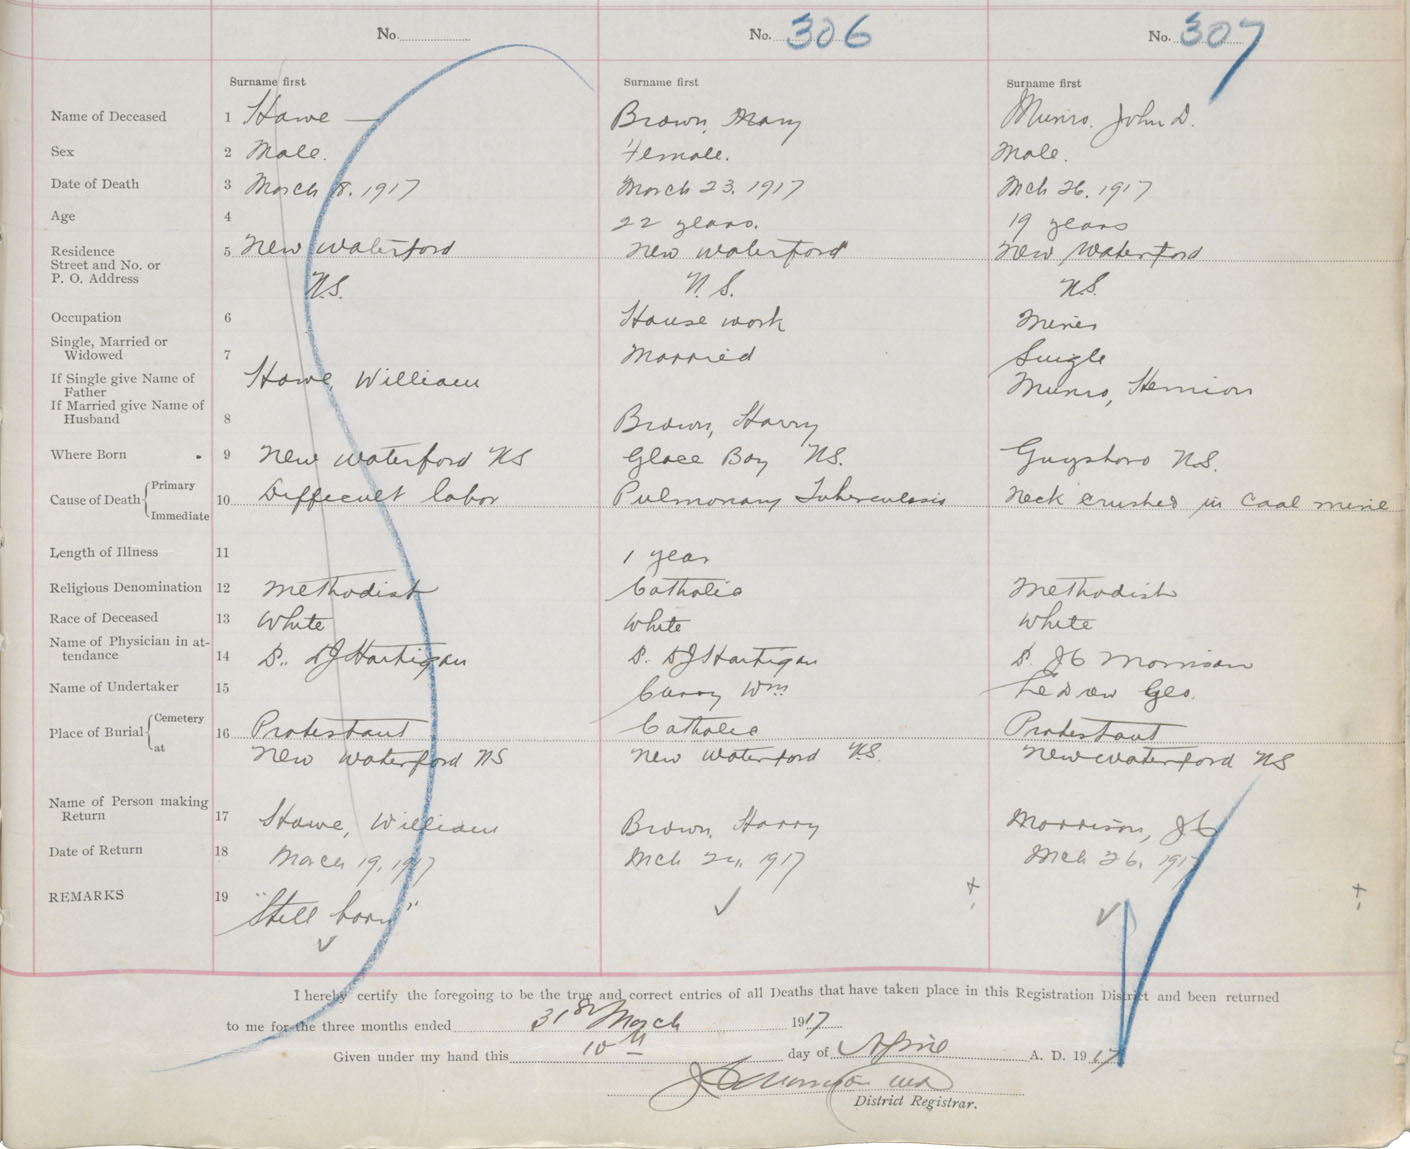 No. No. 306 No. 307
Surname first Surname first Surname first
Name of Deceased 1 Howe — Brown, Mary Munro, John D.
Sex 2 Male. Female. Male.
Date of Death 3 March 8. 1917 March 23. 1917 Mch 26. 1917
Age 4 22 years. 19 years
Residence 5 New Waterford New Waterford New Waterford
Street and No. or
P. O. Address N.S. N.S. N.S.
Occupation 6 House work Miner
Single, Married or
Widowed 7 Married Single
If Single give Name of
Father Howe, William Munro,
If Married give Name of
Husband 8 Brown, Harry
Where Born 9 New Waterford NS Glace Bay NS. Guysboro N.S.
Cause of Death Primary
Immediate 10 Difficult labor Pulmonary Tuberculosis Neck crushed in coal mine
Length of Illness 11 1 year
Religious Denomination 12 Methodist Catholic Methodist
Race of Deceased 13 White White White
Name of Physician in at-
tendance 14 D. DJ Hartigan D. DJ Hartigan D. JC Morrison
Name of Undertaker 15 Curry Wm LeDrew Geo.
Place of Burial Cemetery
at 16 Protestant Catholic Protestant
New Waterford NS New Waterford N.S. New Waterford NS
Name of Person making
Return 17 Howe, William Brown, Harry Morrison, JC
Date of Return 18 March 19, 1917 Mch 24, 1917 Mch 26, 1917
REMARKS 19 "Still born"
I hereby certify the foregoing to be the true and correct entries of all Deaths that have taken place in this Registration District and been returned
to me for the three months ended 31st March 1917
Given under my hand this 10th day of April A. D. 1917
JC Morrison MD
District Registrar.